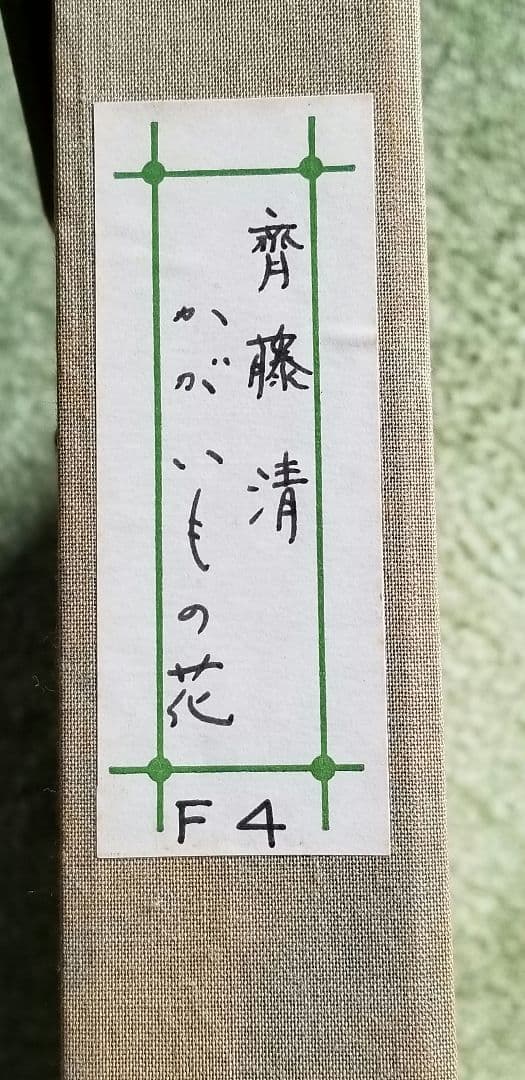 齊藤清
かがいもの花
F4